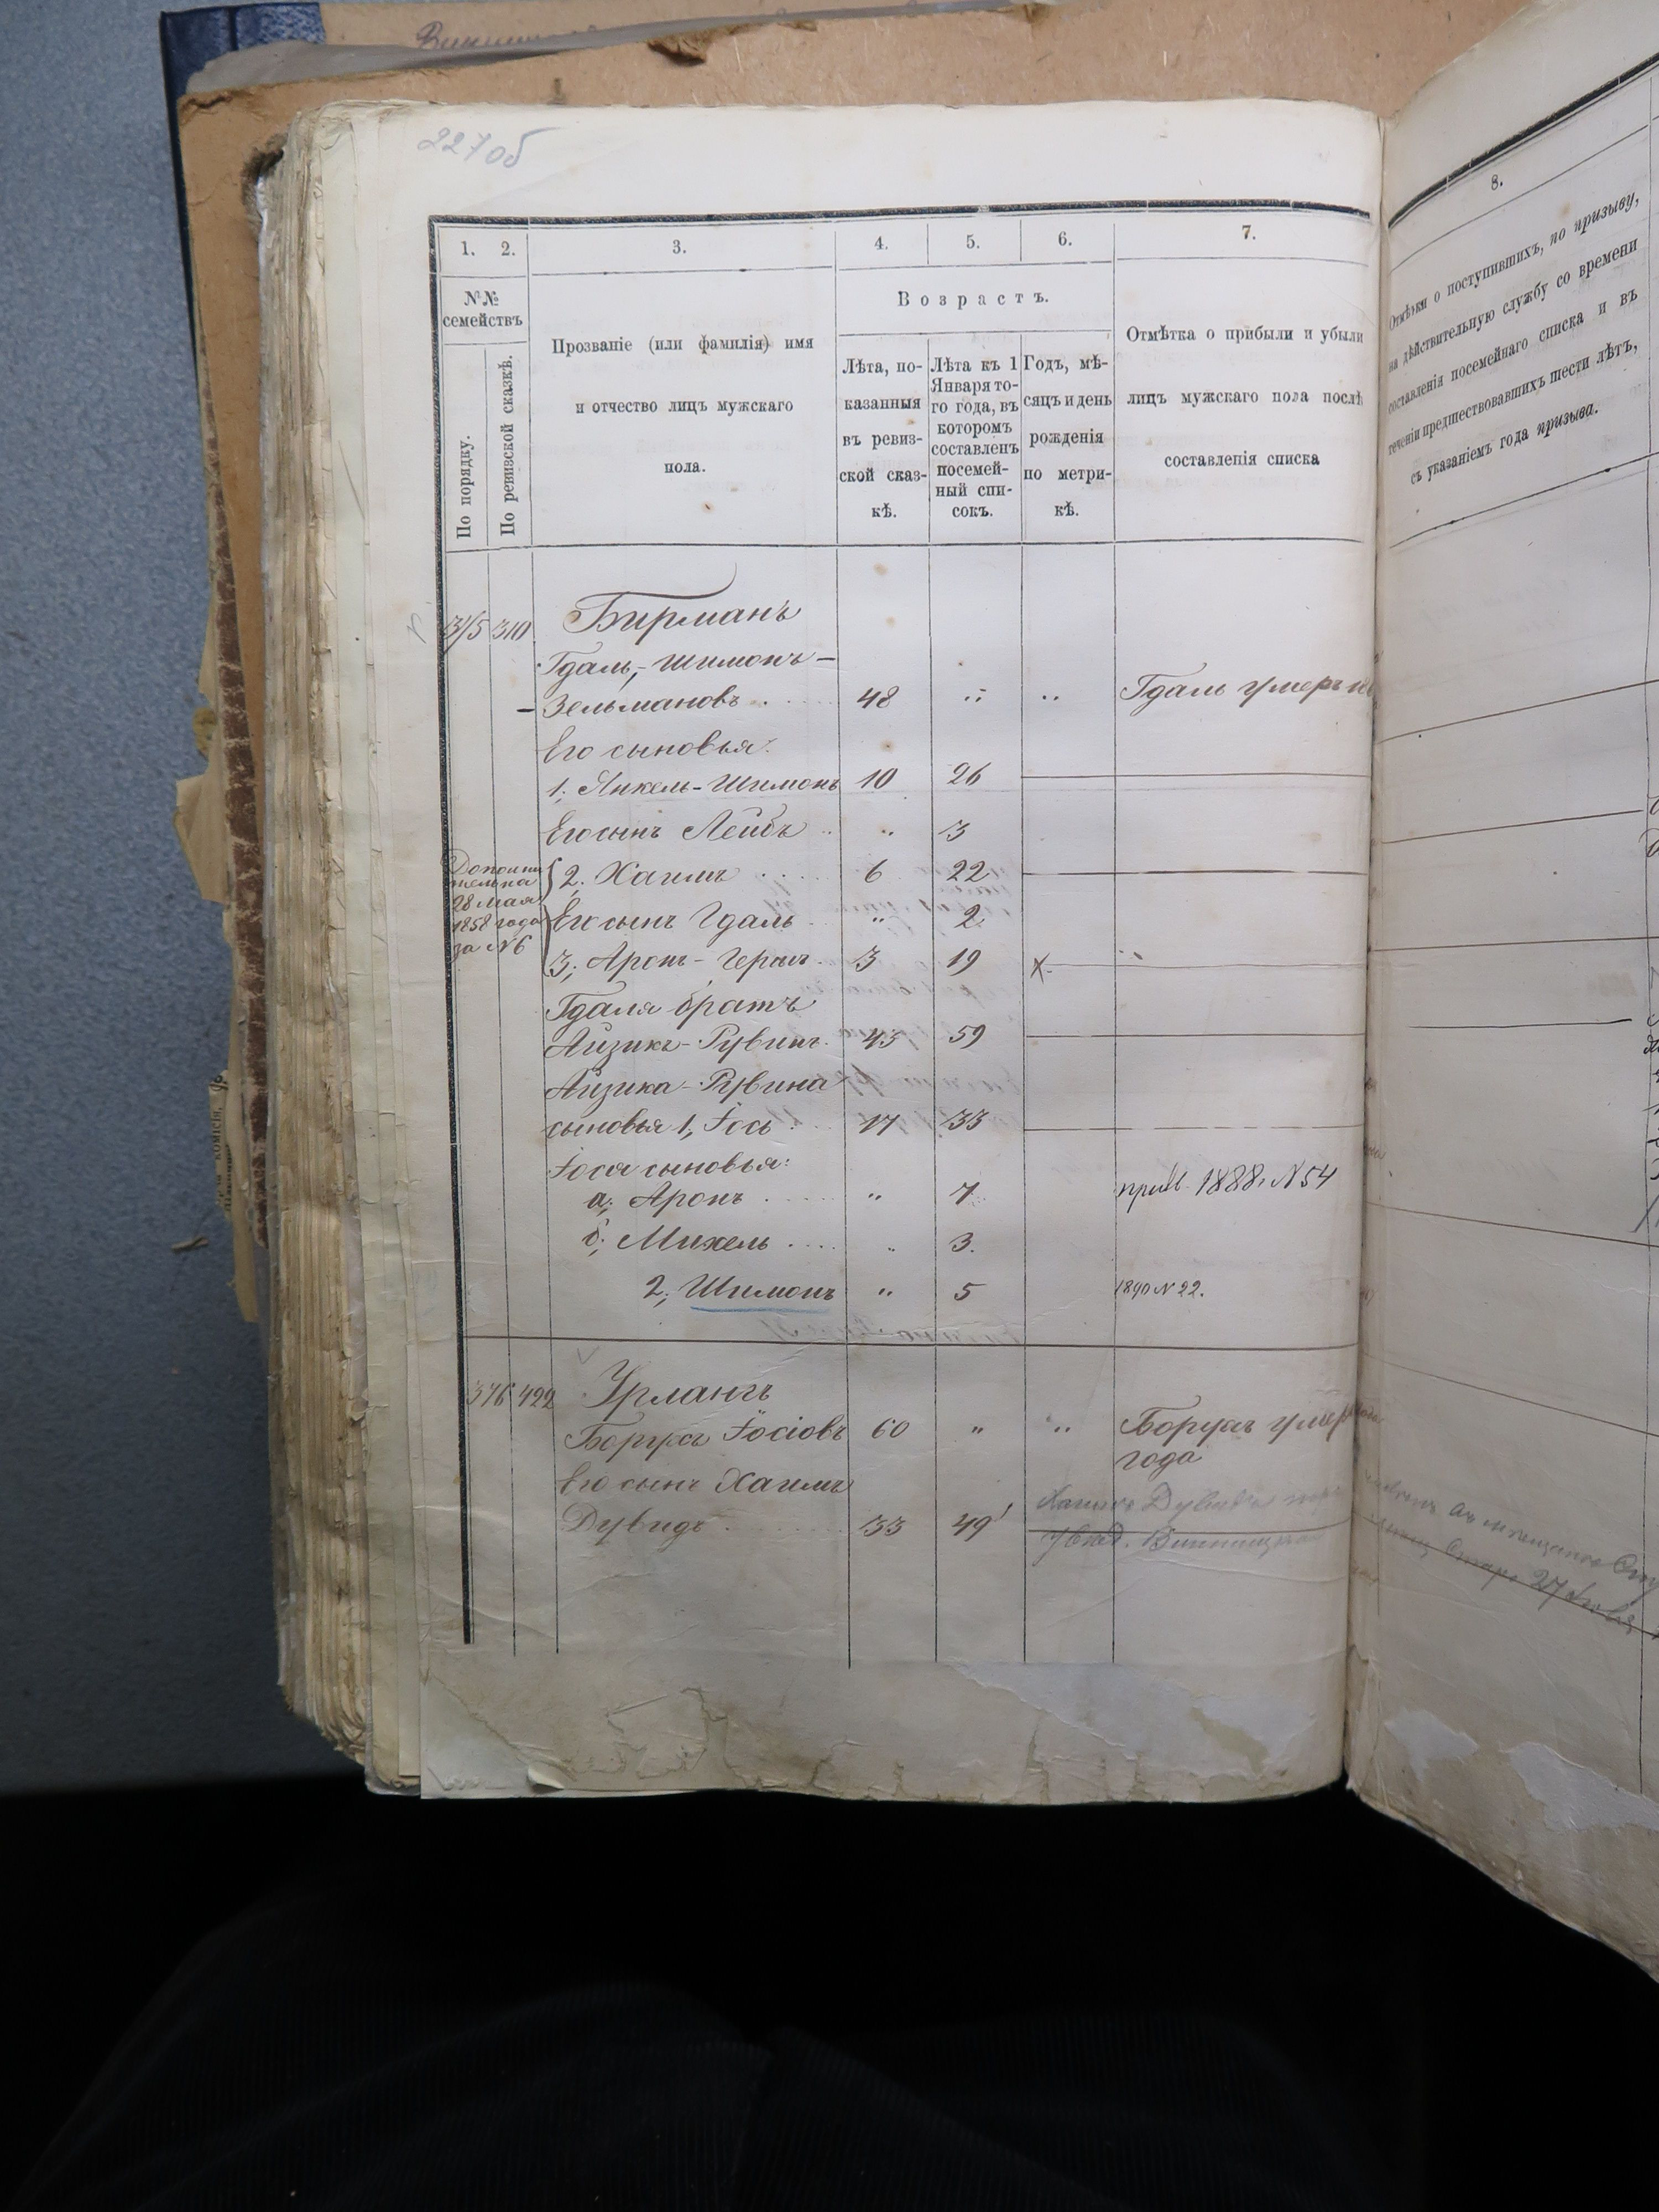 227об
1. 2. 3. 4. 5. 6. 7.
№№ семействъ
По порядку.
По ревизской сказкѣ.
Прозваніе (или фамилія) имя
и отчество лицъ мужскаго
пола.
Возрастъ.
Лѣта, по-
казанныя
въ ревиз-
ской сказ-
кѣ.
Лѣта къ 1
Января то-
го года, въ
котором​ъ
составленъ
посемей-
ный спи-
сокъ.
Годъ, мѣ-
сяцъ и день
рожденія
по метри-
кѣ.
Отмѣтка о прибыли и убыли
лицъ мужскаго пола послѣ
составленія списка
315 310 Бирманъ
Гдаль, Шимонъ-
Зельмановъ 48 Гдаль умеръ
Его сыновья:
1; Янкель-Шимонъ 10 26
Его сынъ Лейбъ " 3
Дополни
тельна
28 мая
1858 года
за №6
2; Хаимъ 6 22
Его сынъ Гдаль " 2
3; Аронъ-Гершъ 3 19 х
Гдаля братъ
Айзикъ-Рувинъ 43 59
Айзика-Рувина
сыновья 1, Іось 17 33
Іося сыновья:
а; Аронъ " 7 прив. 1888. №54
б; Михель " 3.
2; Шимонъ " 5 1890 №22.
376 422 Урлангъ
Борухъ Іосіовъ 60 " " Борухъ умер
года
Его сынъ Хаимъ
Дувидъ 33 49
8.
Отмѣтки о поступившихъ, по призыву,
на дѣйствительную службу со времени
составленія посемейнаго списка и въ
теченіи предшествовавшихъ шести лѣтъ,
съ указаніемъ года призыва.